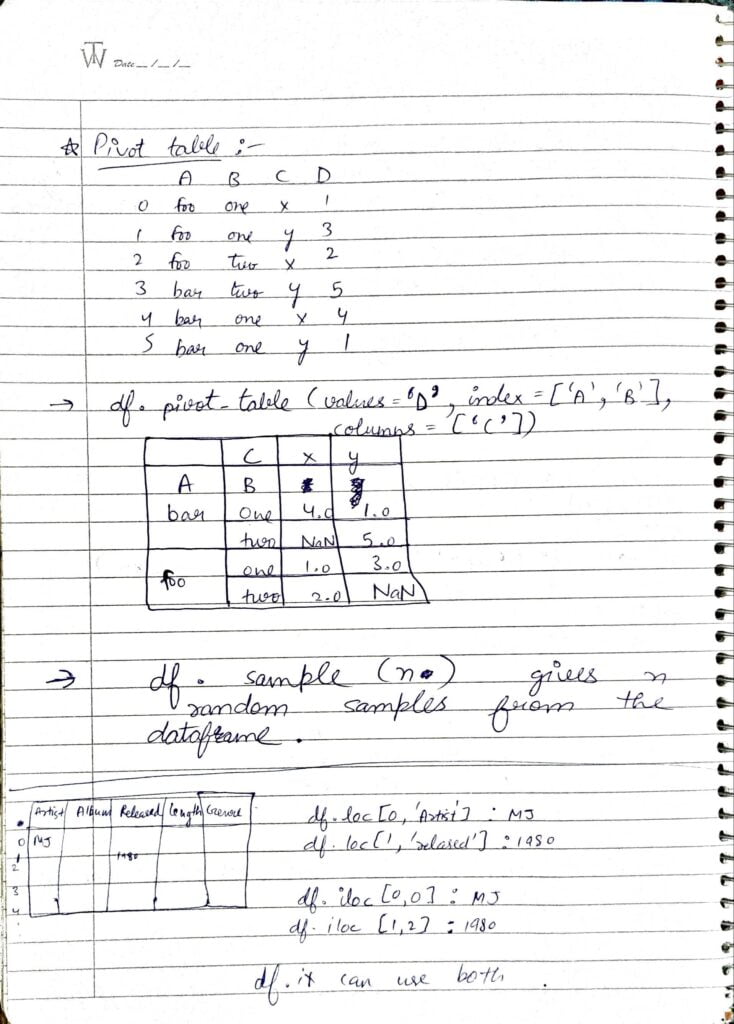 Date_/_/_
☆ Pivot table :-
A B C D
0 foo one x 1
1 foo one y 3
2 foo two x 2
3 bar two y 5
4 bar one x 4
5 bar one y 1
→ df. pivot_table (values = 'D', index = ['A', 'B'],
columns = ['C'])
C x y
A B
bar one 4.0 1.0
two NaN 5.0
foo one 1.0 3.0
two 2.0 NaN
→ df. sample (n) gives n
random samples from the
dataframe.
Artist Album Released Length Genere
0 MJ
1 1980
2
3
4
df. loc [0, 'Artist'] : MJ
df. loc [1, 'relased'] : 1980
df. iloc [0,0] : MJ
df. iloc [1,2] : 1980
df. ix can use both .